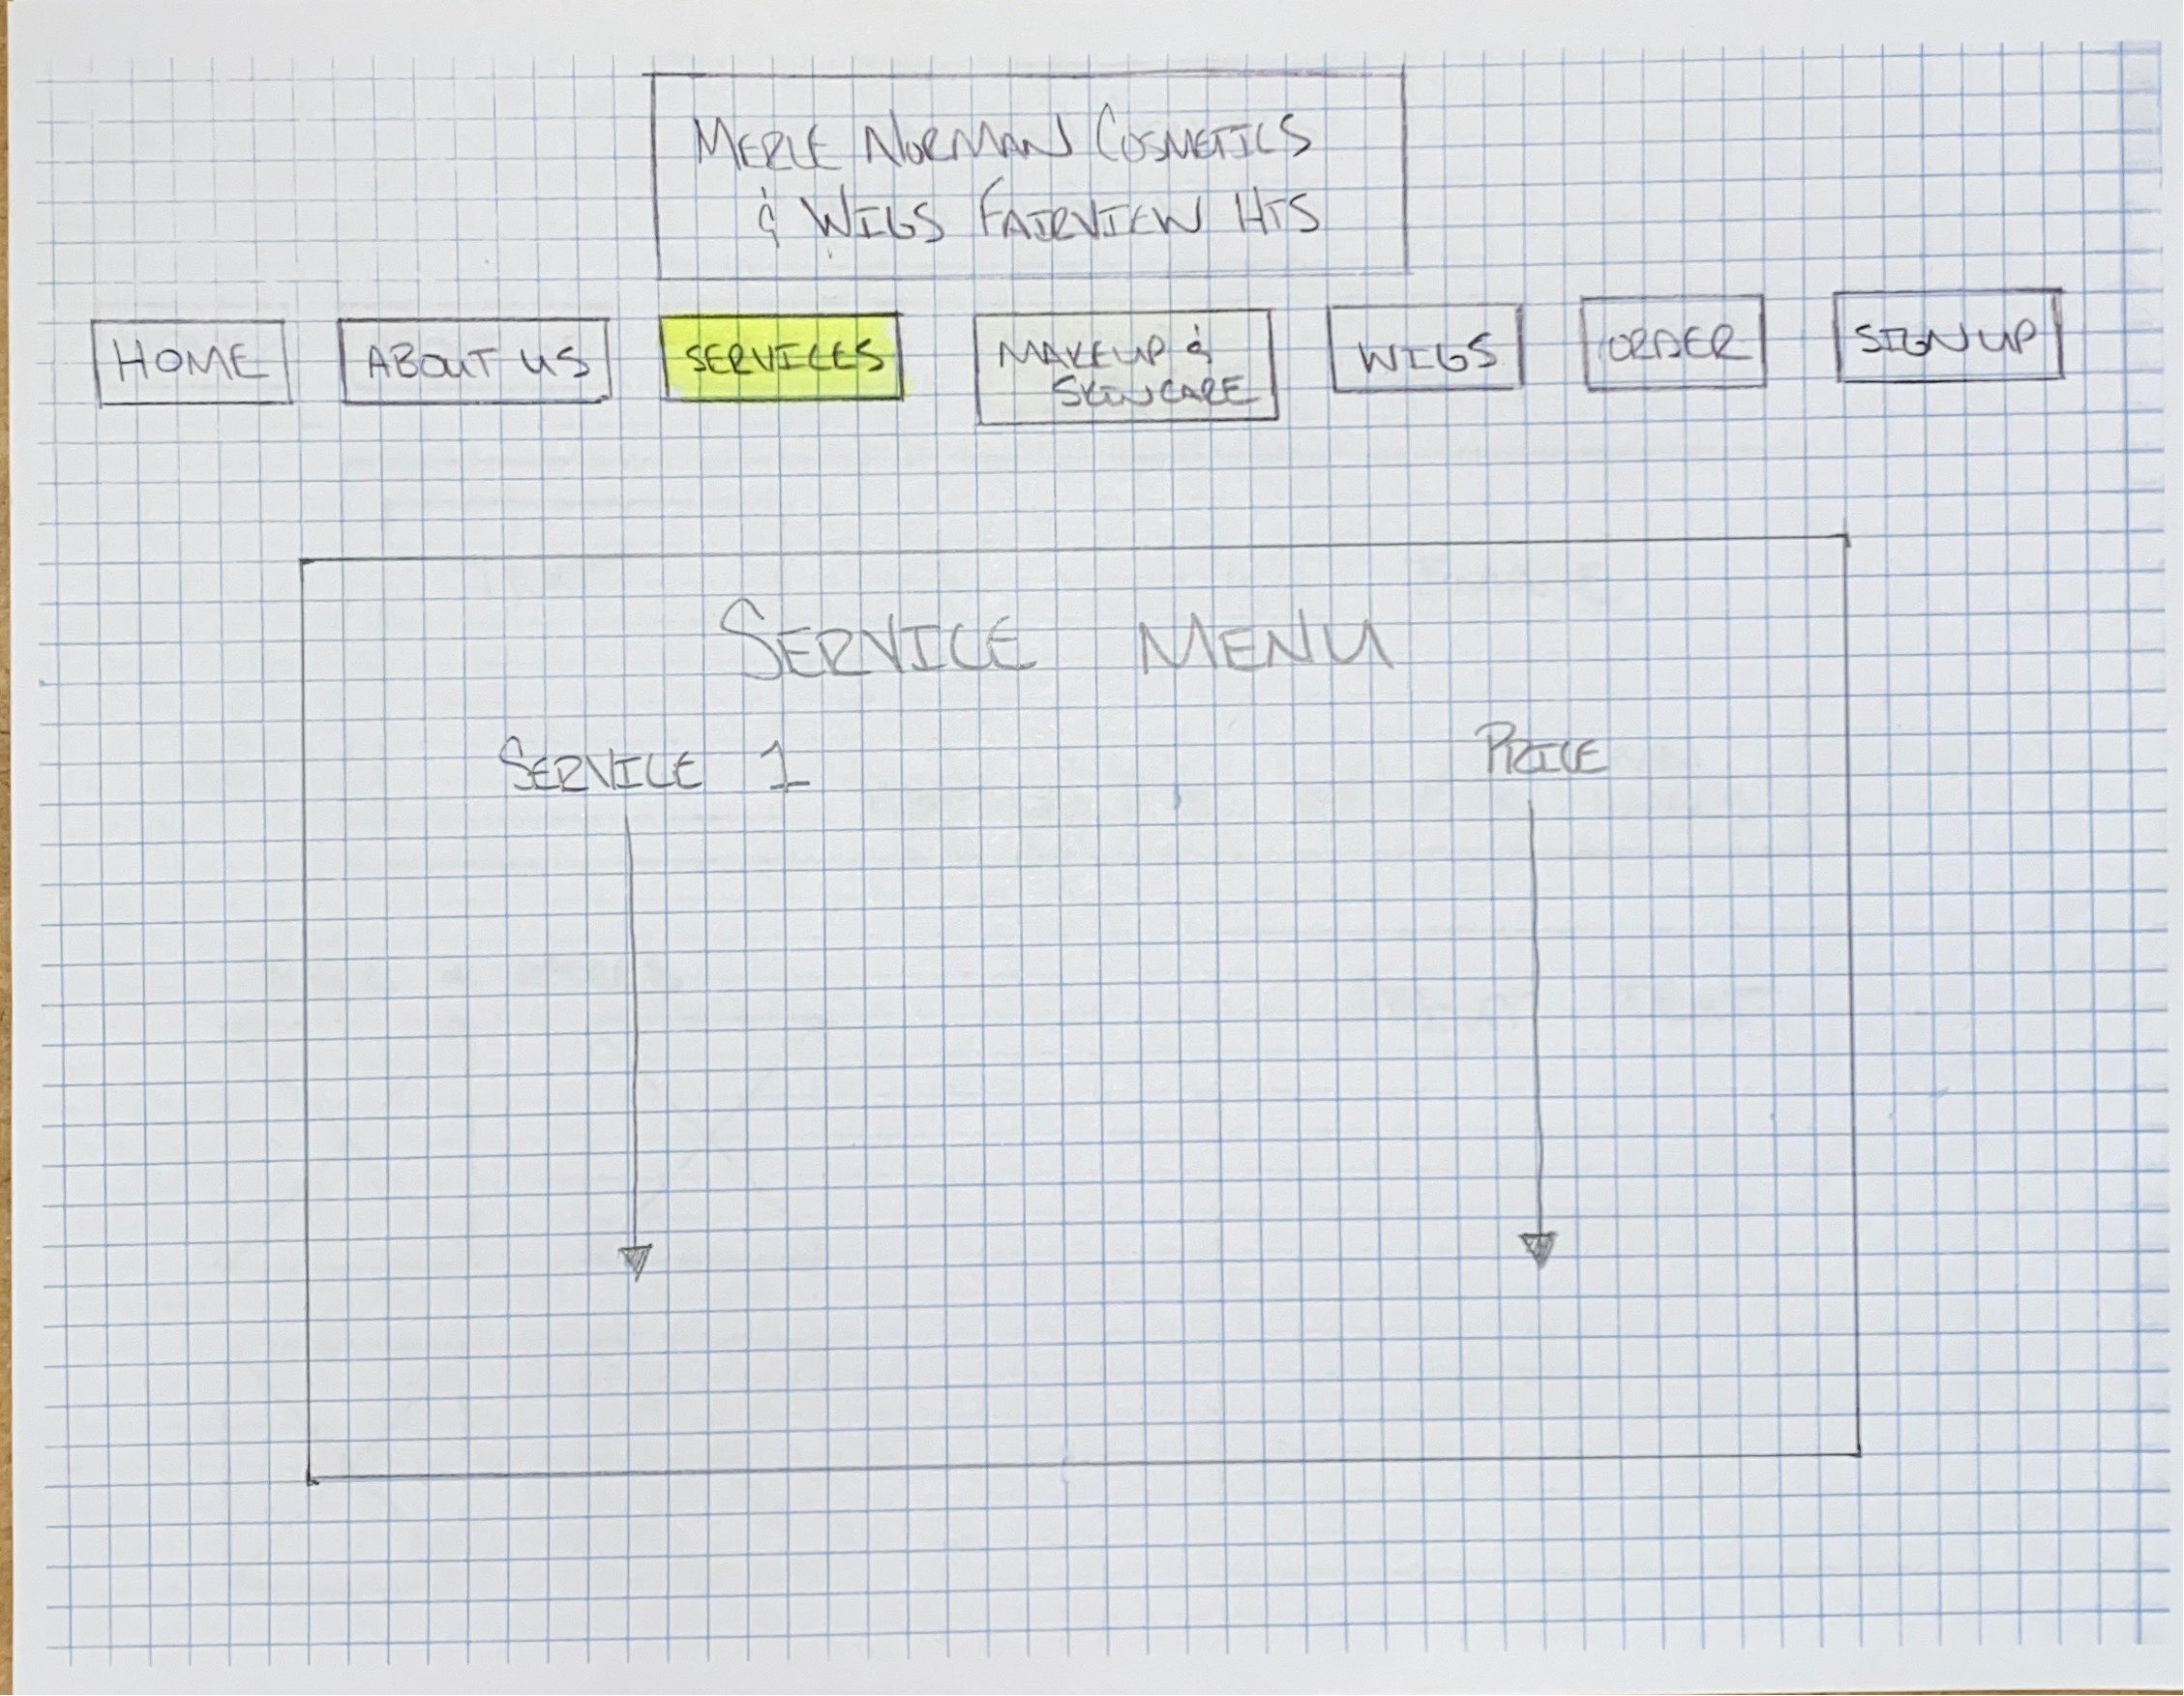 MERLE NORMAN COSMETICS
& WIGS FAIRVIEW HTS
HOME
ABOUT US
SERVICES
MAKEUP &
SKINCARE
WIGS
ORDER
SIGN UP
SERVICE MENU
SERVICE 1
PRICE